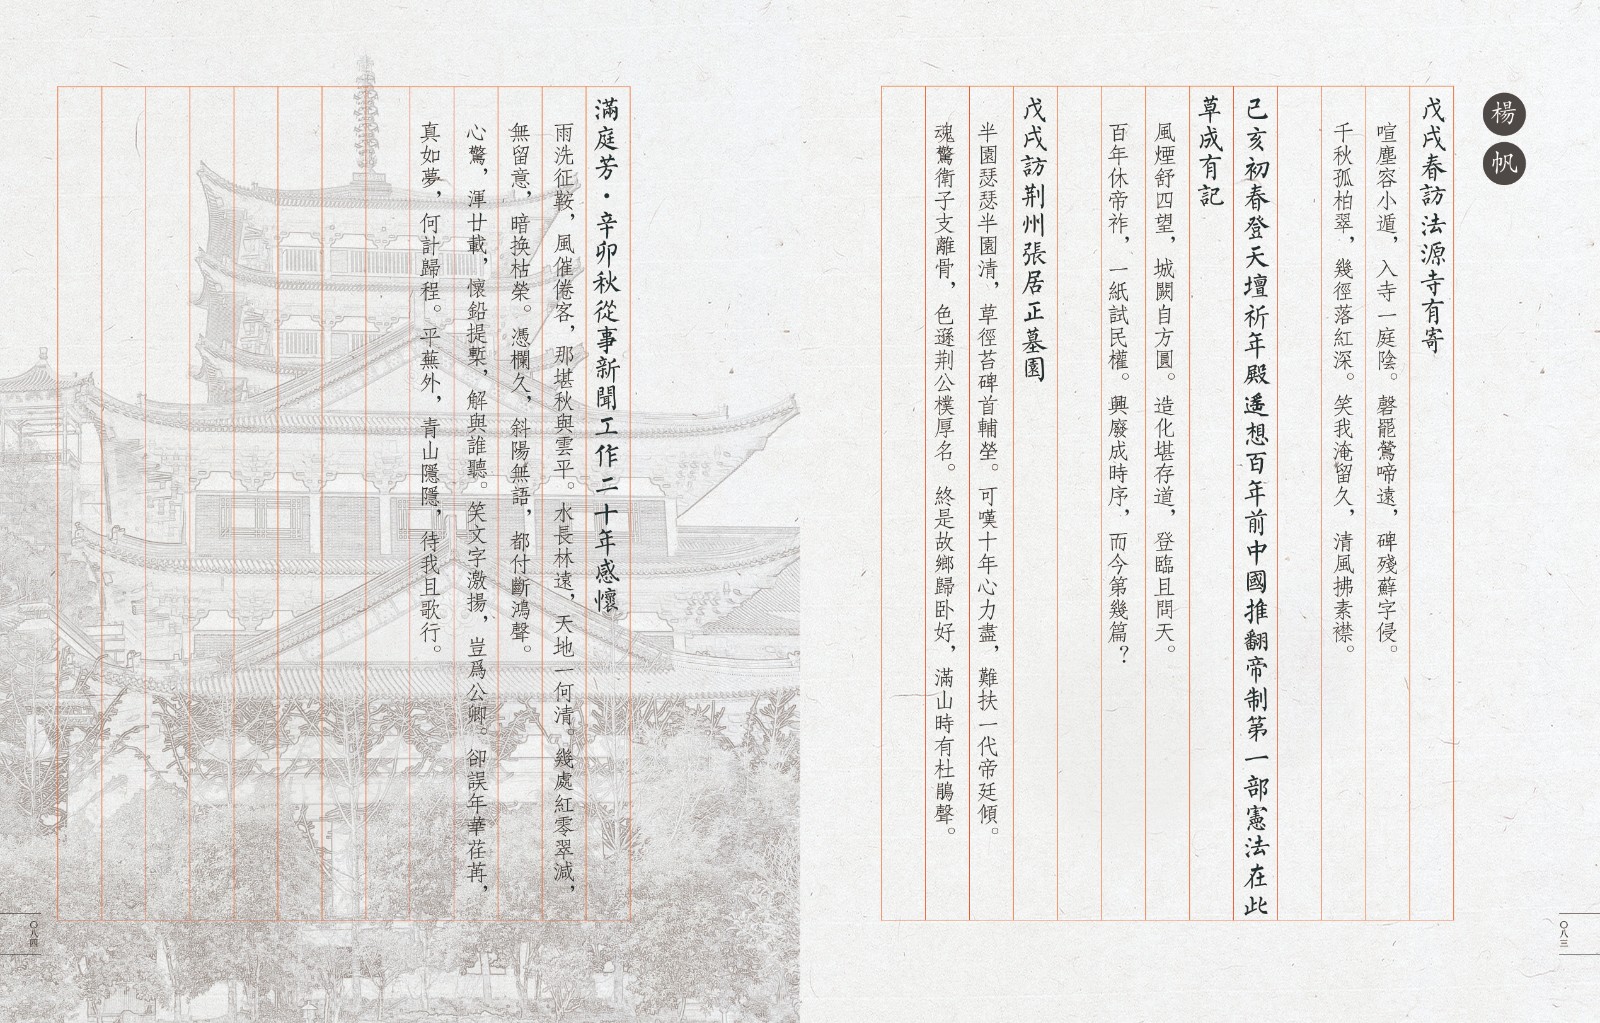 楊帆
戊戌春訪法源寺有寄
喧塵容小遁，入寺一庭陰。磬罷鶯啼遠，碑殘蘚字侵。
千秋孤柏翠，幾徑落紅深。笑我淹留久，清風拂素襟。
己亥初春登天壇祈年殿遥想百年前中國推翻帝制第一部憲法在此
草成有記
風煙舒四望，城闕自方圓。造化堪存道，登臨且問天。
百年休帝祚，一紙試民權。興廢成時序，而今第幾篇？
戊戌訪荆州張居正墓園
半園瑟瑟半園清，草徑苔碑首輔塋。可嘆十年心力盡，難扶一代帝廷傾。
魂驚衛子支離骨，色遜荆公樸厚名。終是故鄉歸卧好，滿山時有杜鵑聲。
〇八三
滿庭芳·辛卯秋從事新聞工作二十年感懷
雨洗征鞍，風催倦客，那堪秋與雲平。水長林遠，天地一何清。幾處紅零翠減，
無留意，暗换枯榮。憑欄久，斜陽無語，都付斷鴻聲。
心驚，渾廿載，懷鉛提槧，解與誰聽。笑文字激揚，豈爲公卿。卻誤年華荏苒，
真如夢，何計歸程。平蕪外，青山隱隱，待我且歌行。
〇八四